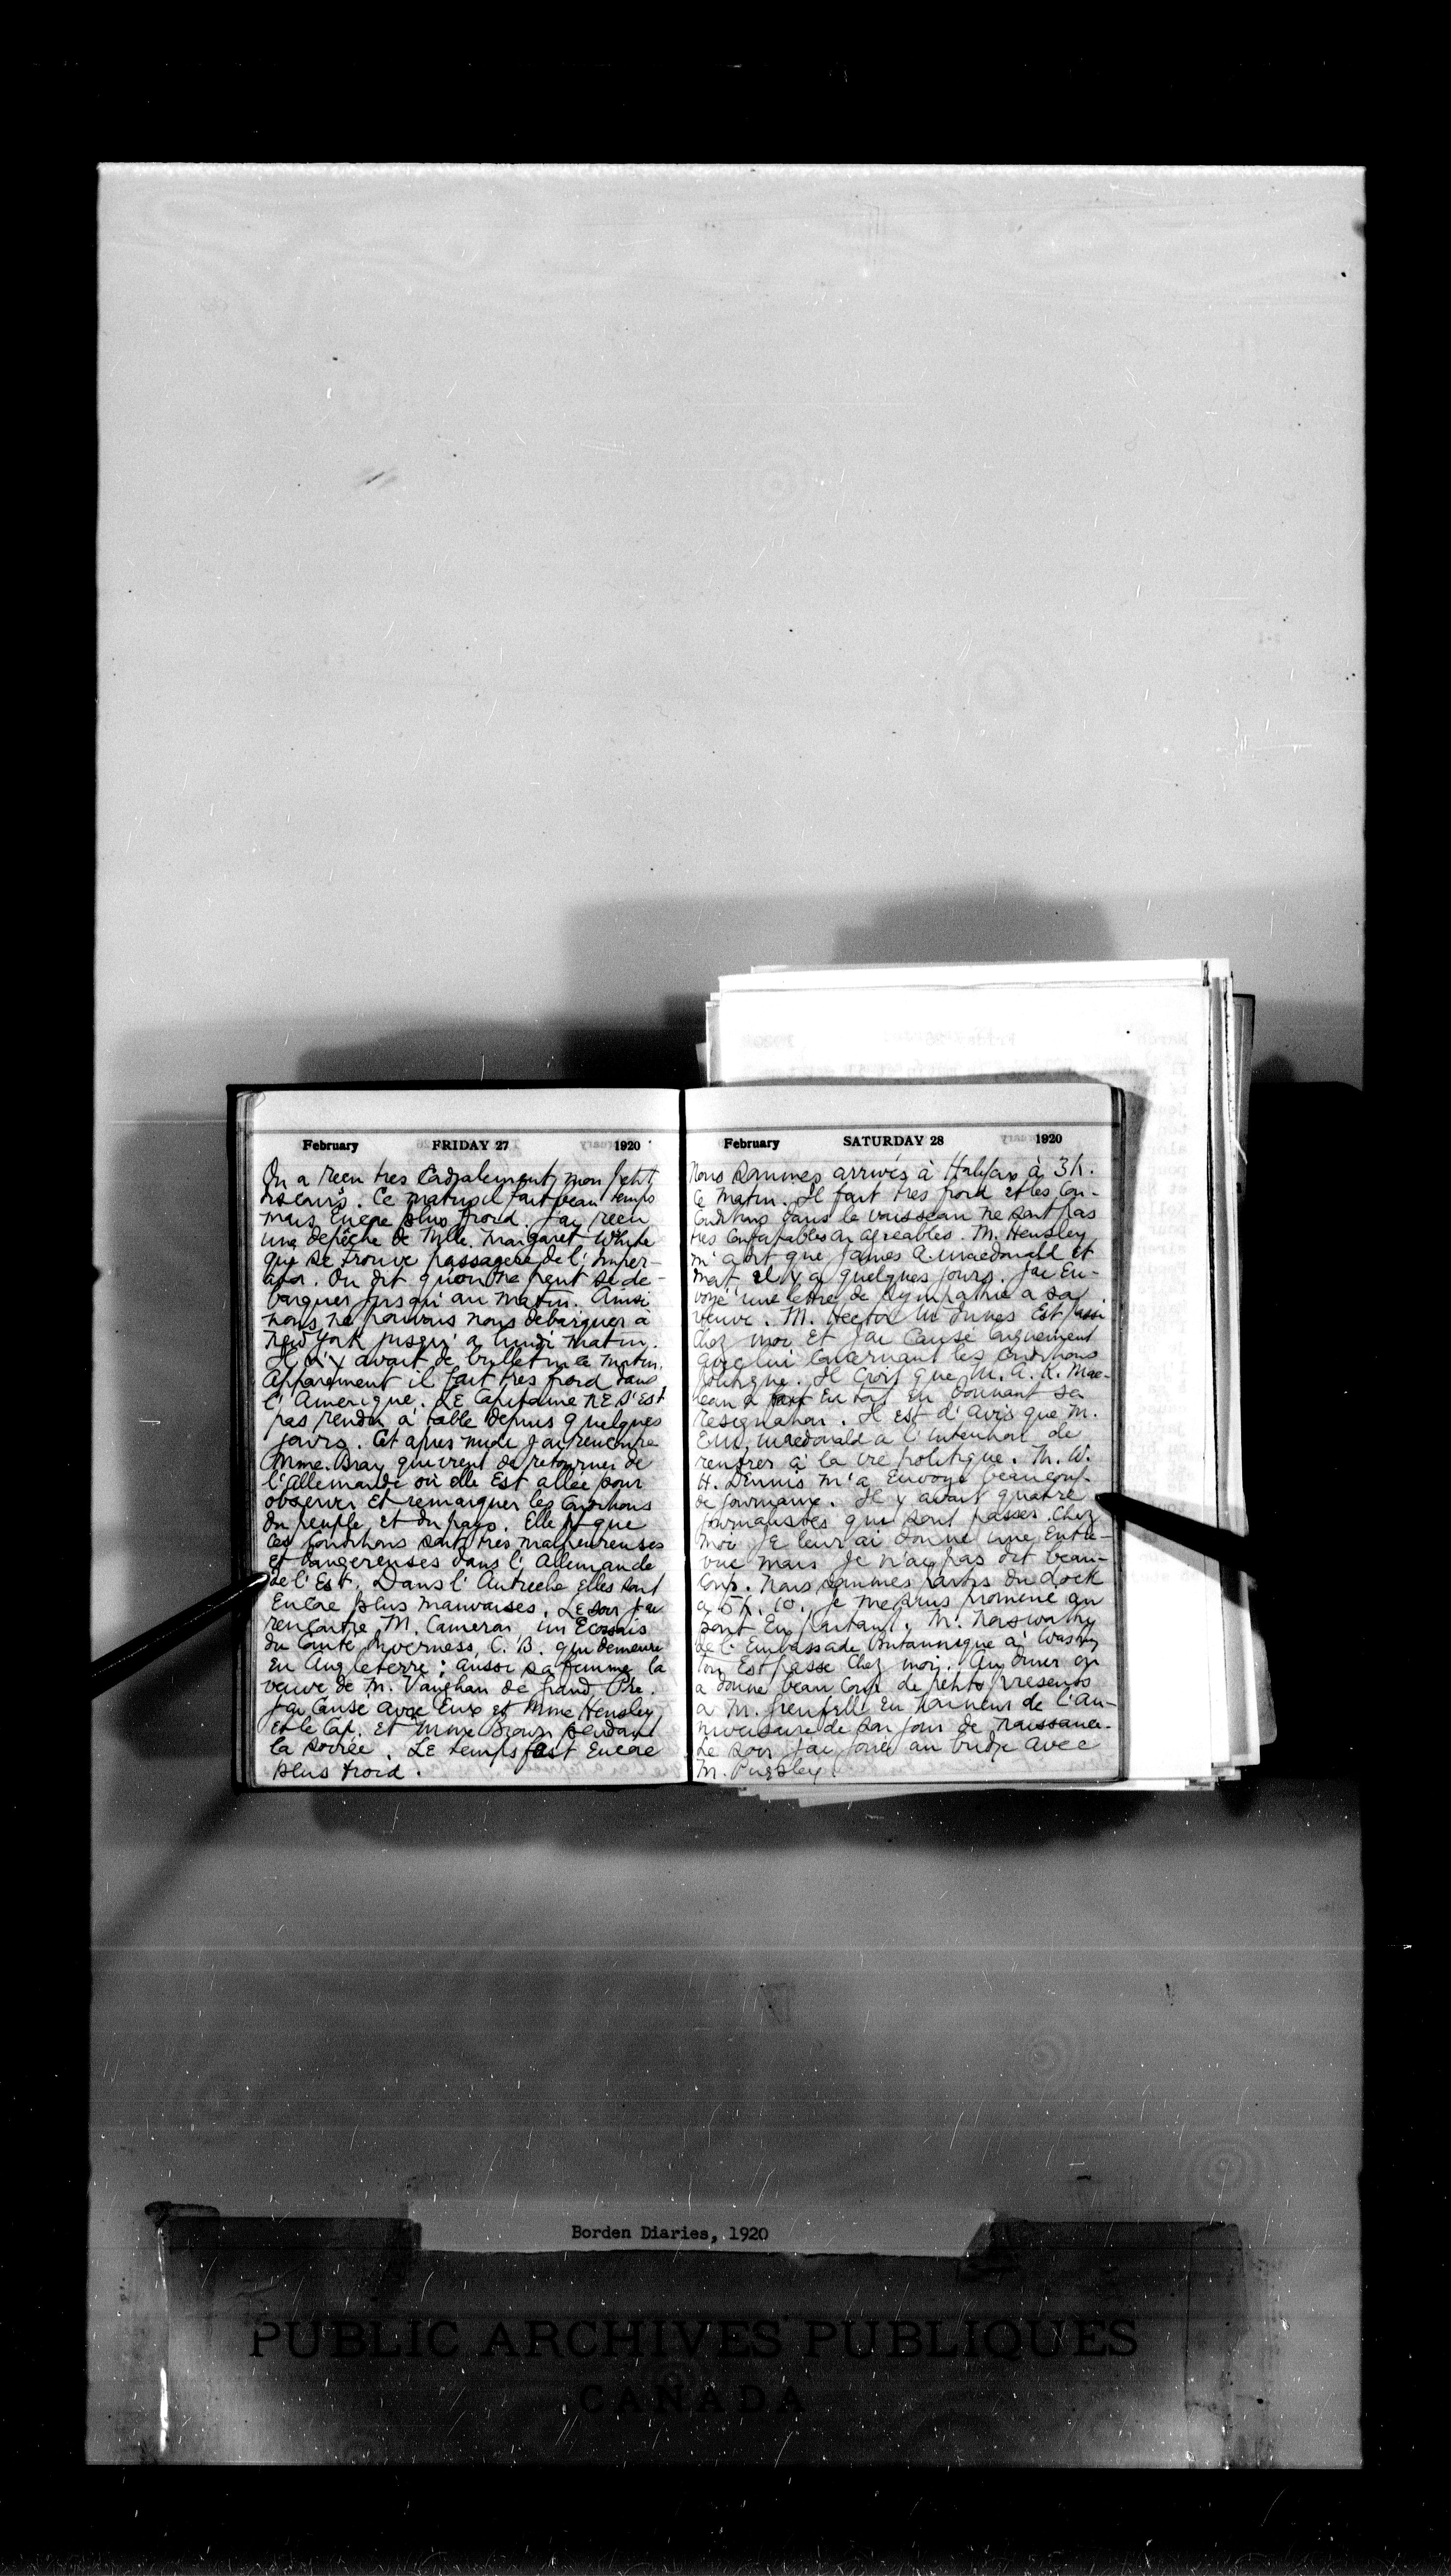 February FRIDAY 27 1920
On a recu tres cadialement mon petit
discours. Ce matin il fait beau temps
mais encore plus froid. J'ai recu
une depêche de Mlle. Margaret White
qui se trouve passagere de l'Imper-
ator. On dit qu'on ne peut se de-
barquer jusqu'au matin. Ainsi
nous ne pouvons nous debarquer à
New York jusqu'a lundi matin.
Il n'y avait de bulletin ce matin.
Apparement il fait tres froid dans
l'Amerique. Le Capitaine ne s'est
pas rendu a table depuis quelques
jours. Cet apres midi j'ai rencontre
Mme. Bray qui vient de retourner de
l'Allemande où elle est allée pour
observer et remarquer les conditions
du peuple et du pays. Elle dit que
ces conditions sont tres malheureuses
et dangereuses dans l'Allemande
de l'Est. Dans l'Autreche elles sont
encore plus mauvaises. Le soir j'ai
rencontre M. Cameron un Ecossais
du Comte Inverness, C.B. qui demeure
en Angleterre; aussi sa femme la
veuve de M. Vaughan de Grand Pré.
J'ai causé avec eux et Mme Hensley
et le Cap. et Mme Brown pendant
la soirée. Le temps fait encore
plus froid.
February SATURDAY 28 1920
Nous sommes arrivés à Halifax à 3h.
ce matin. Il fait tres froid et les con-
conditions dans le vaisseau ne sont pas
tres confortables ou agreables. M. Hensley
m'a dit que James A. Macdonald et
mort, il y a quelques jours. J'ai en-
voyé une lettre de sympathie a sa
veuve. M. Hector McInnes est passé
chez moi et j'ai causé longuement
avec lui concernant les conditions
politique. Il croit que M. A. K. Mac-
lean a tort en donnant sa
resignation. Il est d'avis que M.
E.M. Macdonald a l'intention de
rentrer à la vie politique. M. W.
H. Dennis m'a envoyé beaucoup
de journaux. Il y avait quatre
journalistes qui sont passes chez
moi. Je leur ai donne une entre-
vue mais je n'ai pas dit beau-
coup. Nous sommes partis du dock
a 5h. 10. Je me suis promené au
pont en partant. M.
de l'Embassade Britannique à Washing
ton est passe chez moi. Au diner on
a donne beau coup de petits presents
a M. Grenfell en honneur de l'an-
niversaire de son jour de naissance.
Le soir j'ai joué au bridge avec
M. Pugsley.
Borden Diaries, 1920
PUBLIC ARCHIVES PUBLIQUES
CANADA